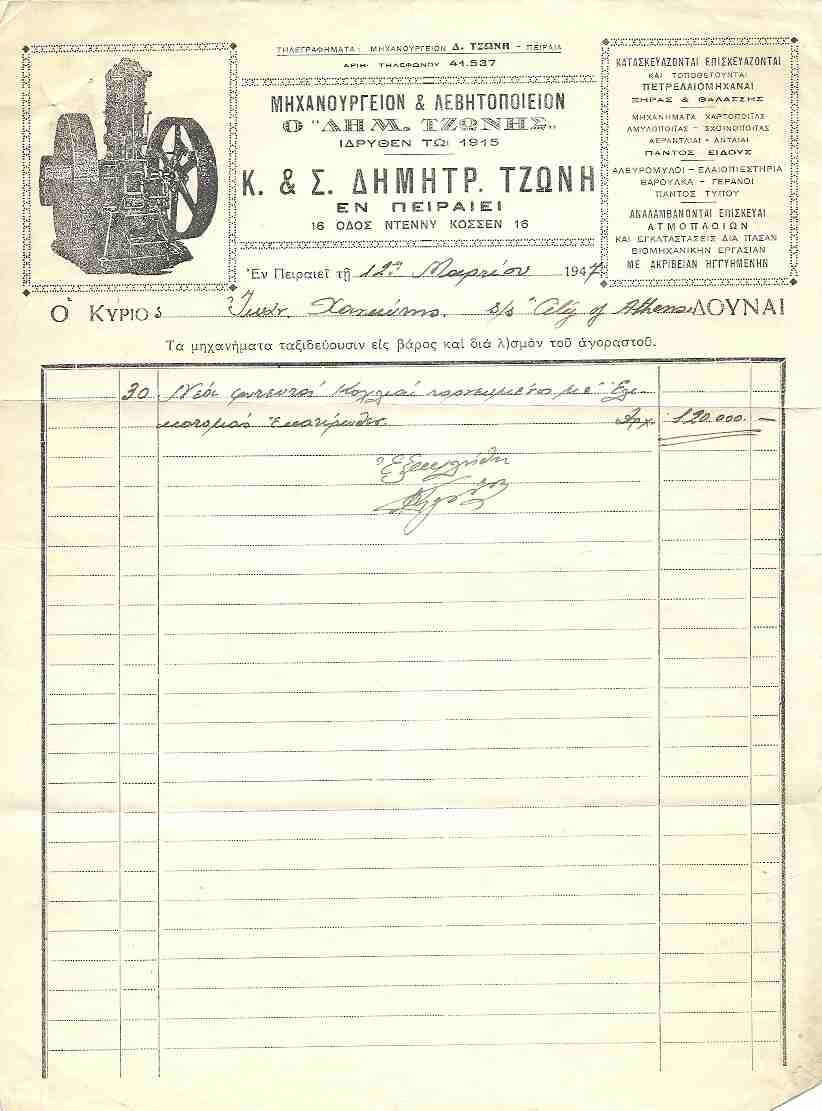 ΤΗΛΕΓΡΑΦΗΜΑΤΑ: ΜΗΧΑΝΟΥΡΓΕΙΟΝ Δ. ΤΖΩΝΗ - ΠΕΙΡΑΙΑ
ΑΡΙΘ. ΤΗΛΕΦΩΝΟΥ 41.537
ΜΗΧΑΝΟΥΡΓΕΙΟΝ & ΛΕΒΗΤΟΠΟΙΕΙΟΝ
Ο "ΔΗΜ. ΤΖΩΝΗΣ"
ΙΔΡΥΘΕΝ ΤΩι 1915
Κ. & Σ. ΔΗΜΗΤΡ. ΤΖΩΝΗ
ΕΝ ΠΕΙΡΑΙΕΙ
16 ΟΔΟΣ ΝΤΕΝΝΥ ΚΟΣΣΕΝ 16
ΚΑΤΑΣΚΕΥΑΖΟΝΤΑΙ ΕΠΙΣΚΕΥΑΖΟΝΤΑΙ
ΚΑΙ ΤΟΠΟΘΕΤΟΥΝΤΑΙ
ΠΕΤΡΕΛΑΙΟΜΗΧΑΝΑΙ
ΞΗΡΑΣ & ΘΑΛΑΣΣΗΣ
ΜΗΧΑΝΗΜΑΤΑ ΧΑΡΤΟΠΟΙΪΑΣ
ΑΜΥΛΟΠΟΙΪΑΣ - ΣΧΟΙΝΟΠΟΙΪΑΣ
ΑΕΡΑΝΤΛΙΑΙ - ΑΝΤΛΙΑΙ
ΠΑΝΤΟΣ ΕΙΔΟΥΣ
ΑΛΕΥΡΟΜΥΛΟΙ - ΕΛΑΙΟΠΙΕΣΤΗΡΙΑ
ΒΑΡΟΥΛΚΑ - ΓΕΡΑΝΟΙ
ΠΑΝΤΟΣ ΤΥΠΟΥ
ΑΝΑΛΑΜΒΑΝΟΝΤΑΙ ΕΠΙΣΚΕΥΑΙ
ΑΤΜΟΠΛΟΙΩΝ
ΚΑΙ ΕΓΚΑΤΑΣΤΑΣΕΙΣ ΔΙΑ ΠΑΣΑΝ
ΒΙΟΜΗΧΑΝΙΚΗΝ ΕΡΓΑΣΙΑΝ
ΜΕ ΑΚΡΙΒΕΙΑΝ ΗΓΓΥΗΜΕΝΗΝ
Ἐν Πειραιεῖ τῇ 12ῃ Μαρτίου 1947
Ὁ ΚΥΡΙΟς Ἰωάν. s/s "City of Athens ΔΟΥΝΑΙ
Τα μηχανήματα ταξιδεύουσιν εἰς βάρος καὶ διὰ λ)σμὸν τοῦ ἀγοραστοῦ.
30 Νέοι με
Δρχ. 120.000. —
Ἐξωφλήθη